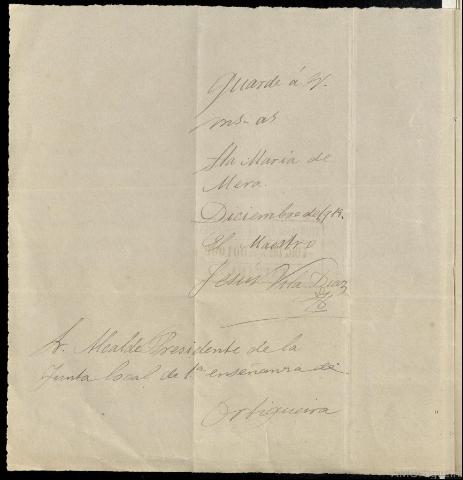 Guarde á V.
ms. as
Sta Maria de
Mera.
Diciembre de 1919.
El Maestro
Jesus Vila Diaz
Sr. Alcalde Presidente de la
Junta local de 1ª enseñanza de
Ortigueira